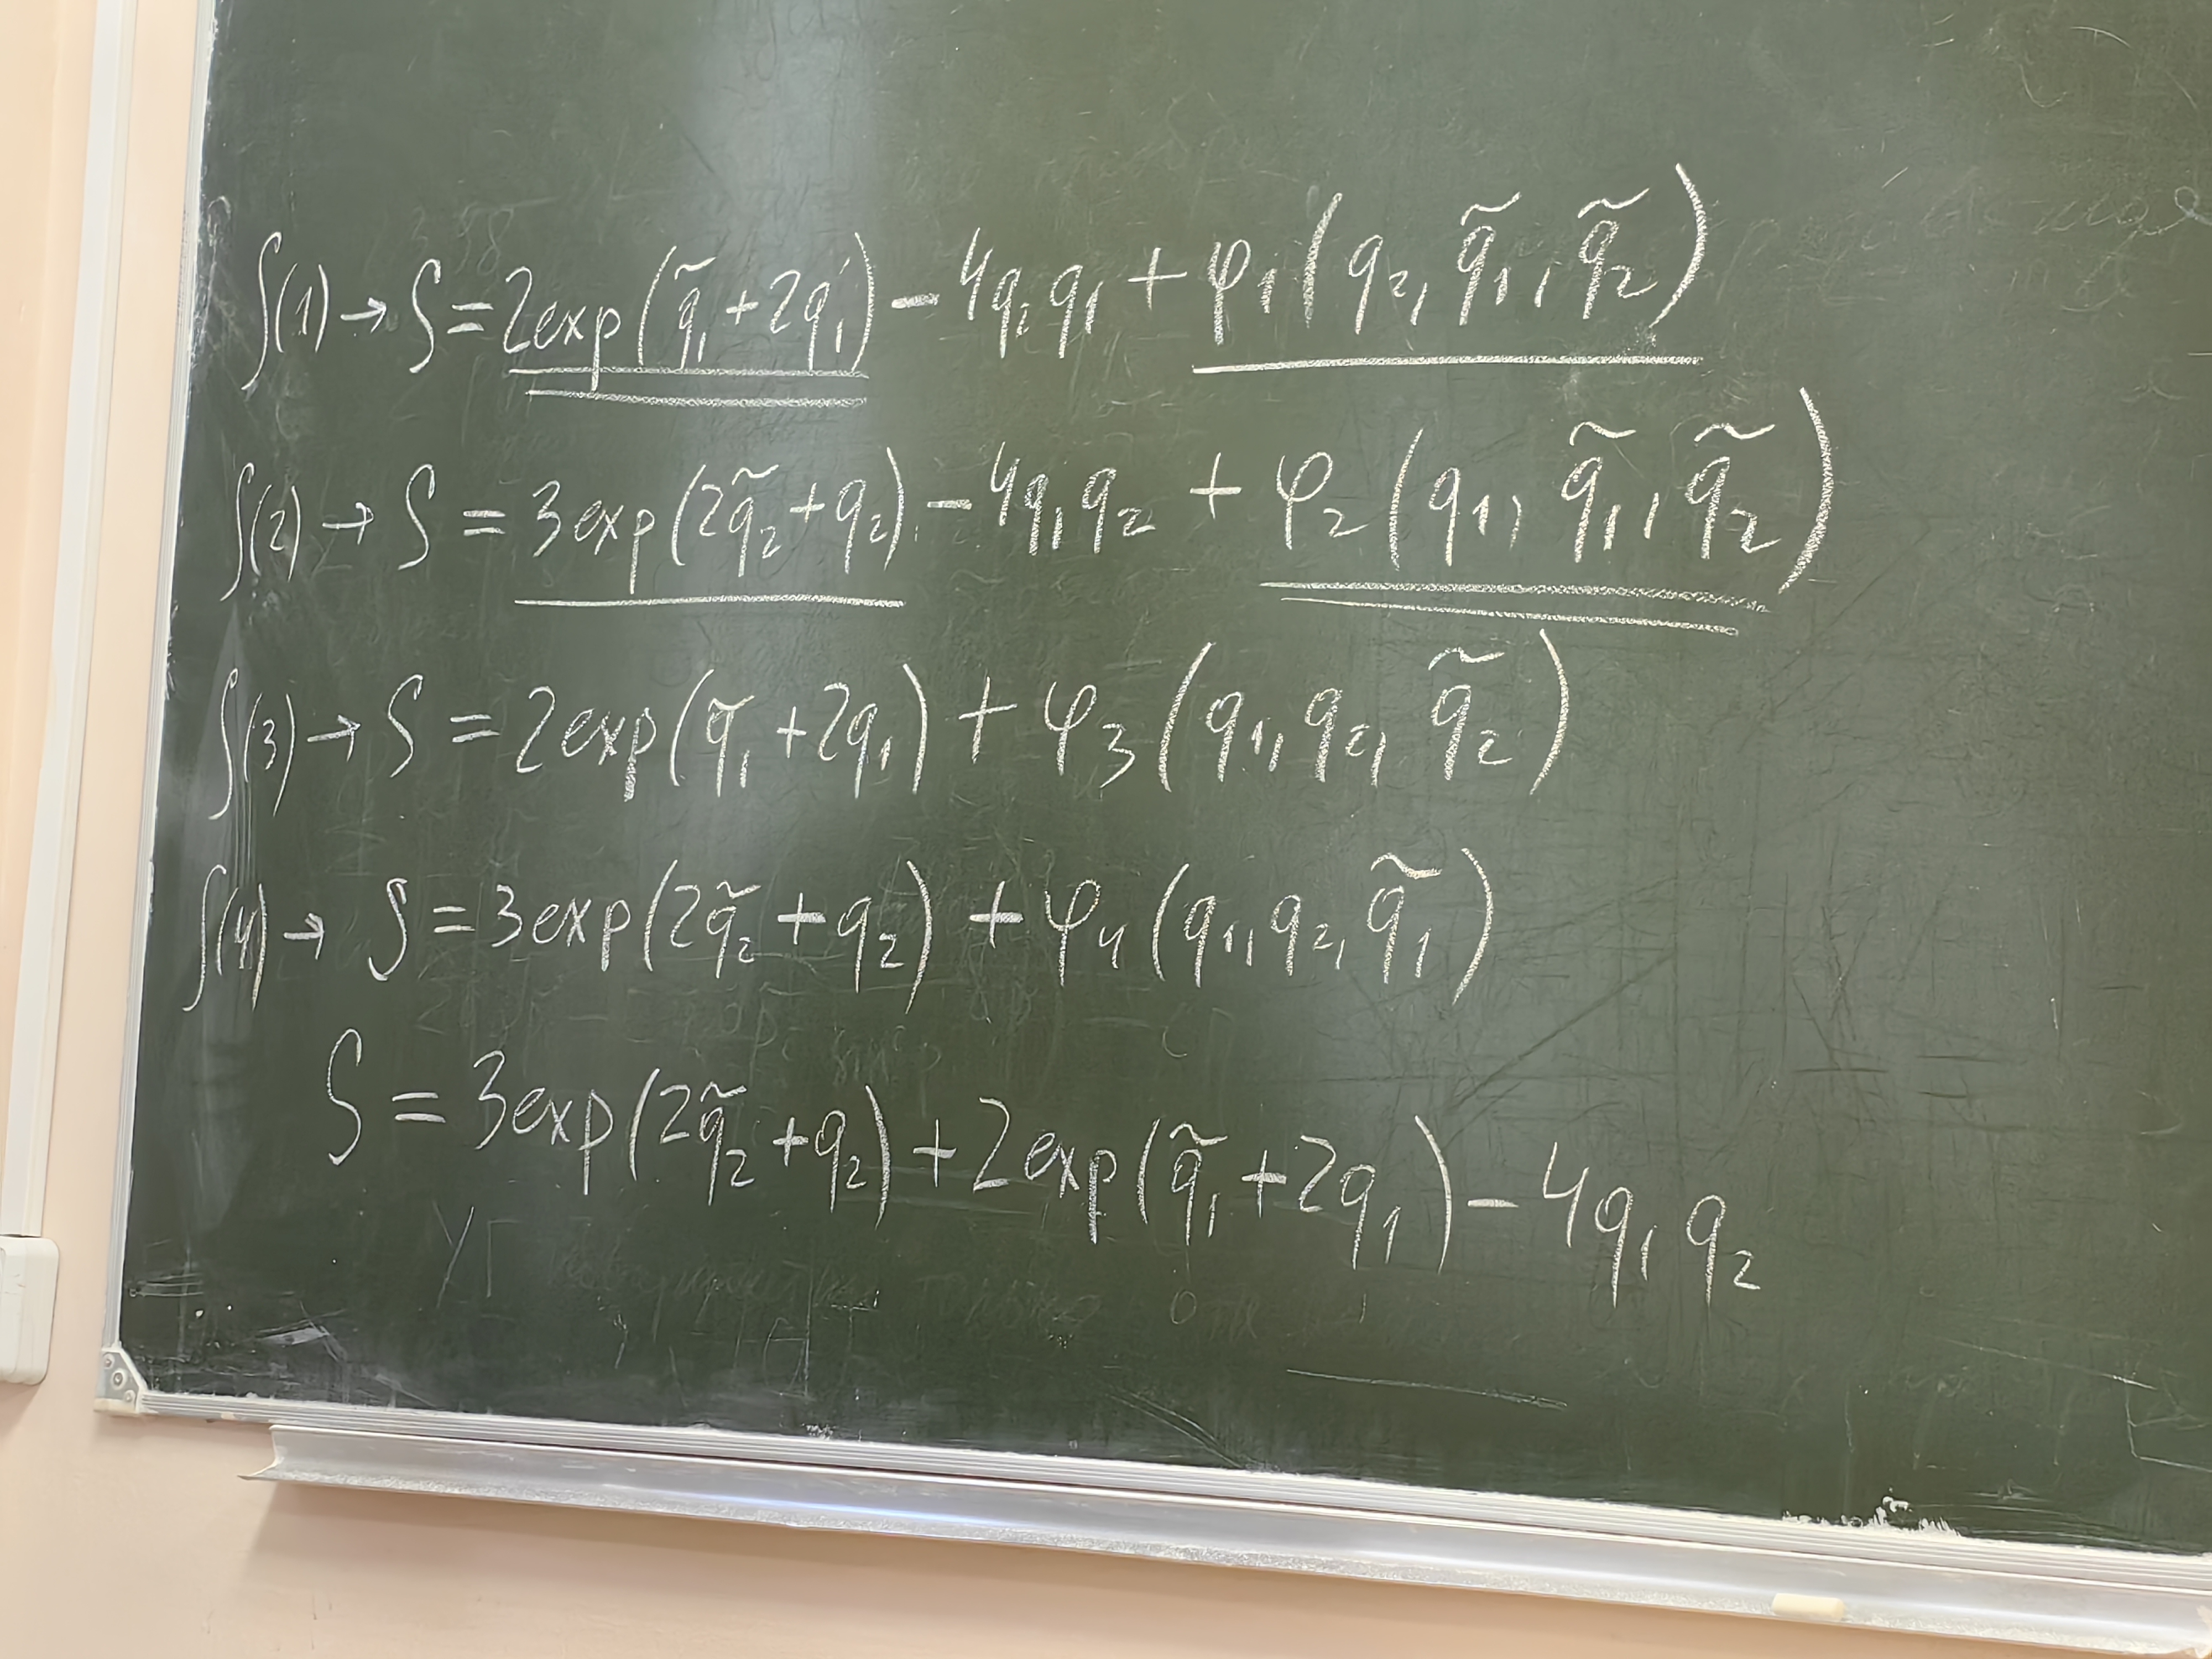 ∫(1) → S = 2exp(q̃₁ + 2q₁) − 4q₂q₁ + φ₁(q₂, q̃₁, q̃₂)
∫(2) → S = 3exp(2q̃₂ + q₂) − 4q₁q₂ + φ₂(q₁, q̃₁, q̃₂)
∫(3) → S = 2exp(q̃₁ + 2q₁) + φ₃(q₁, q₂, q̃₂)
∫(4) → S = 3exp(2q̃₂ + q₂) + φ₄(q₁, q₂, q̃₁)
S = 3exp(2q̃₂ + q₂) + 2exp(q̃₁ + 2q₁) − 4q₁q₂